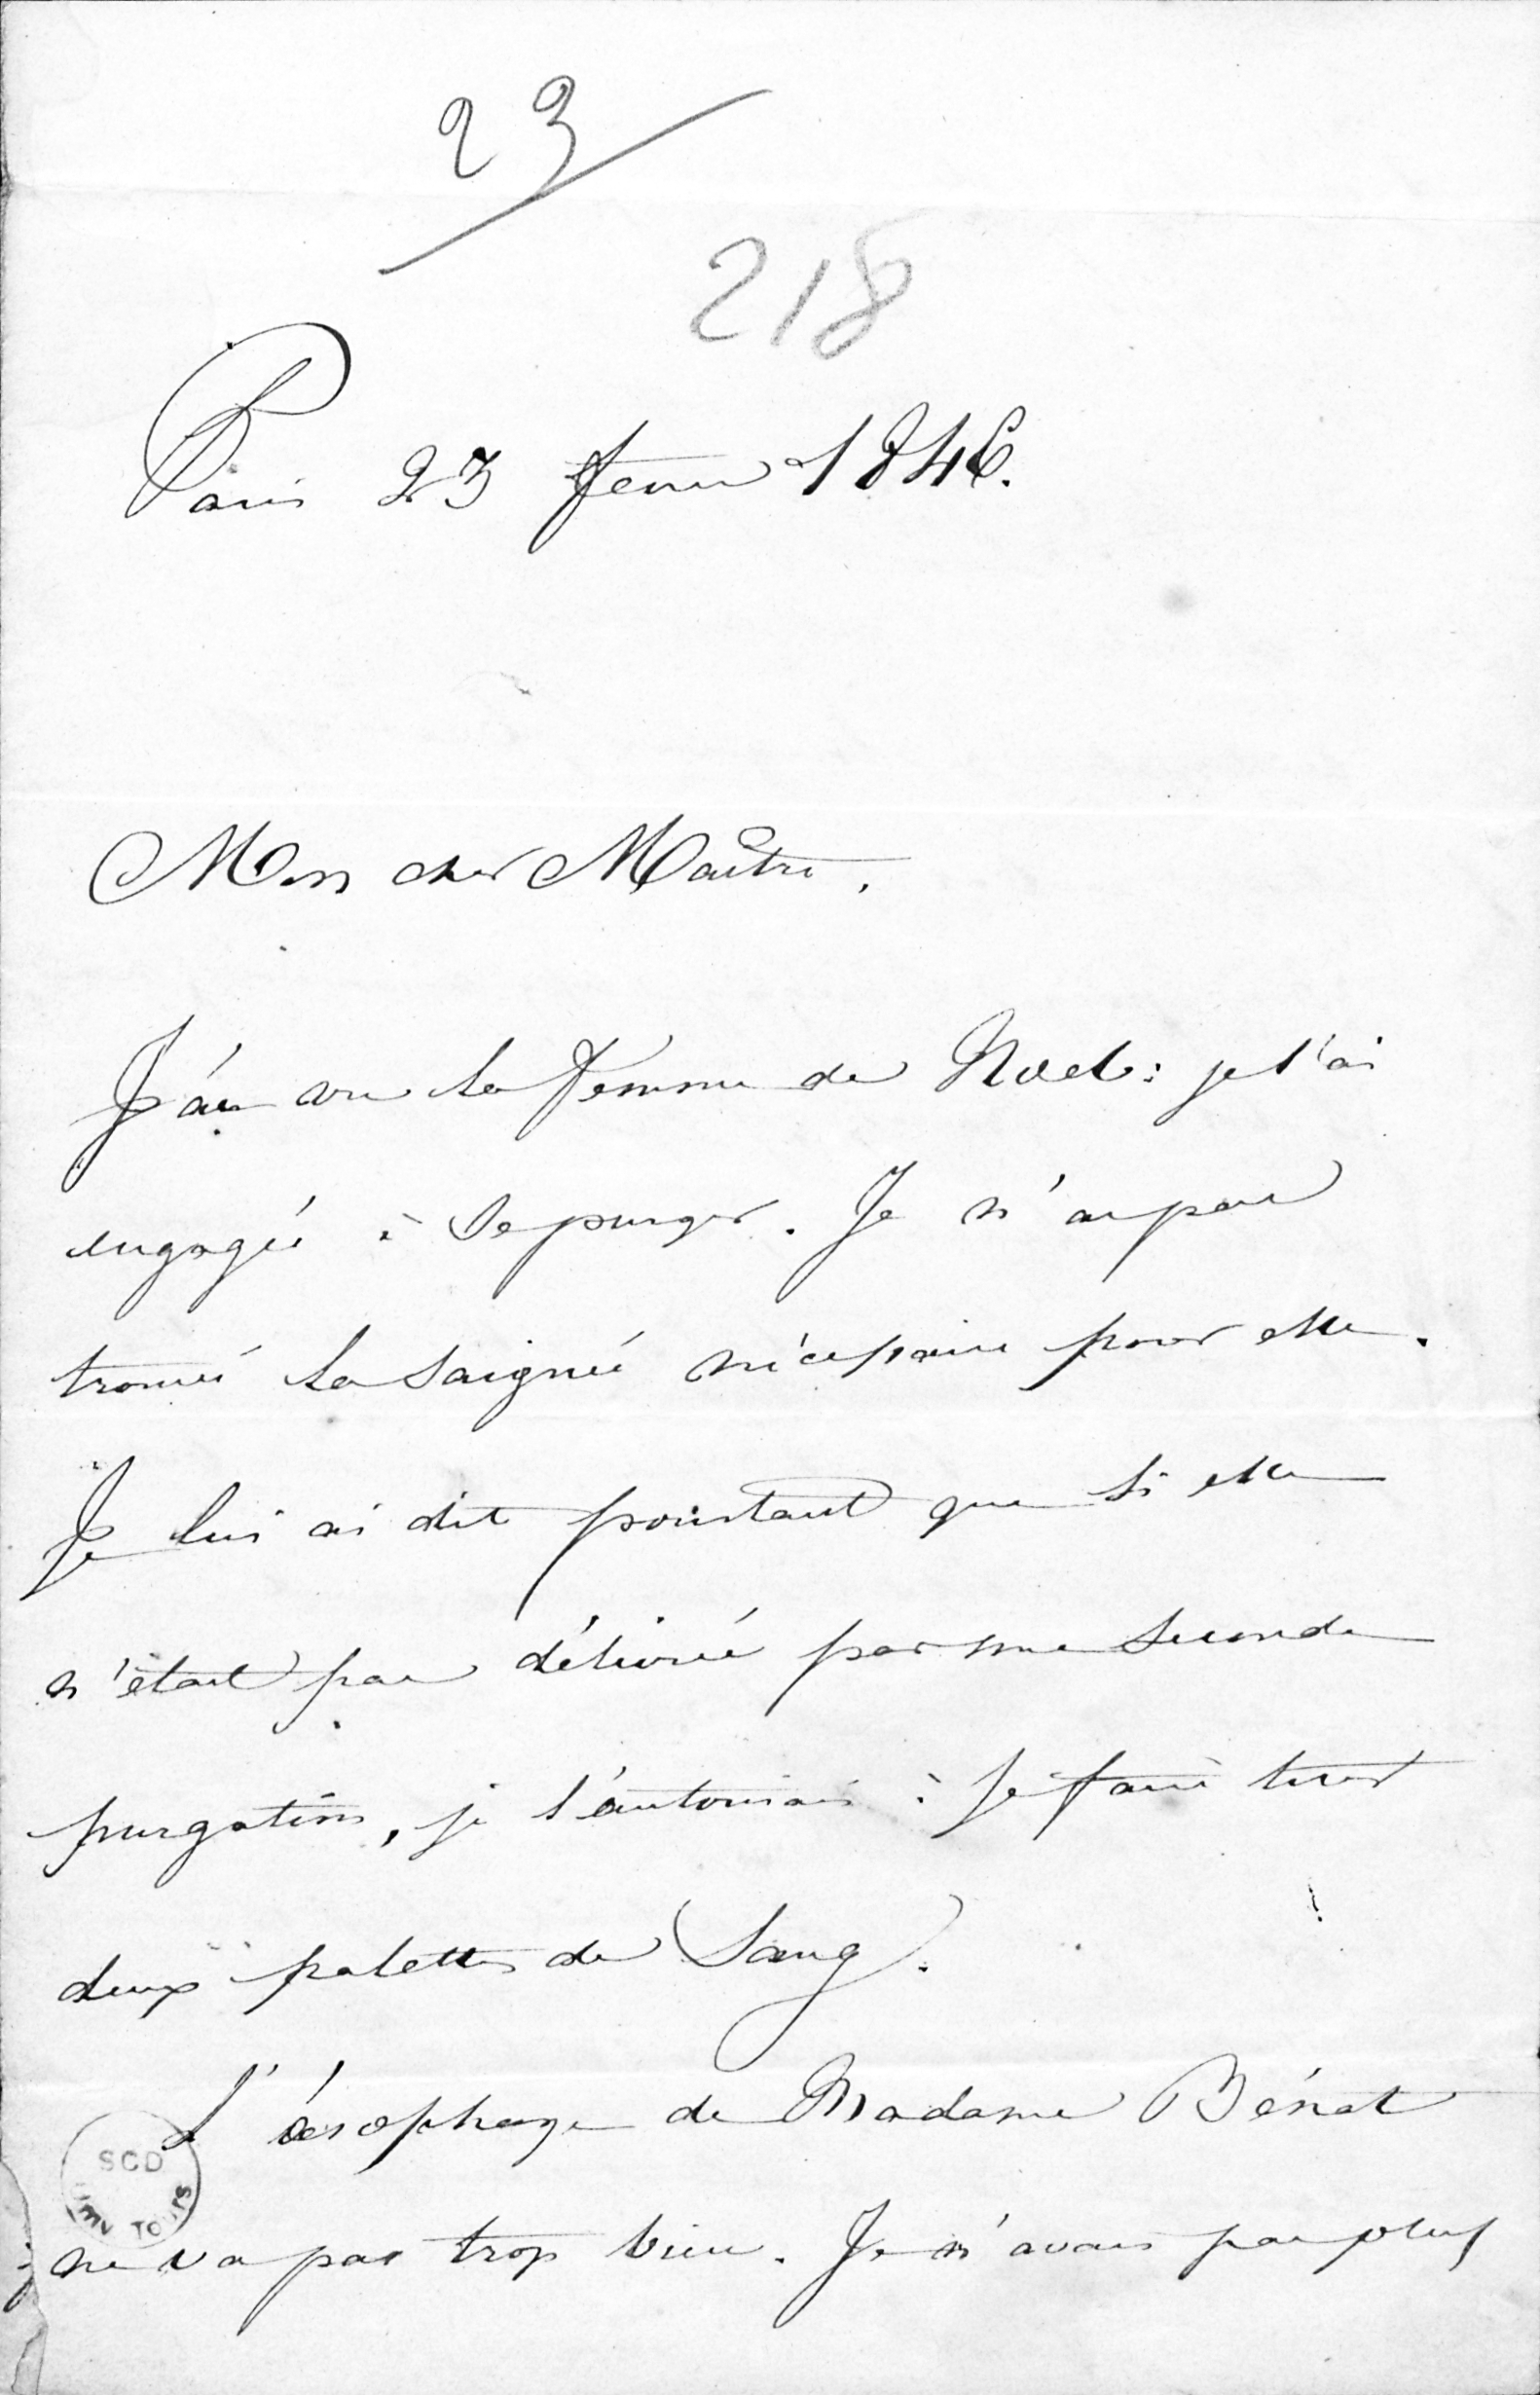 23
218
Paris 23 fevrier 1846.
Mon cher Maître,
J'ai vu la femme de Noel: je l'ai
engagée à se purger. Je n'ai pas
trouvé la saignée nécessaire pour elle.
Je lui ai dit pourtant que si elle
n'était pas délivrée par une seconde
purgation, je l'autorisais à se faire tirer
deux palettes de sang.
L'œsophage de Madame Bénat
ne va pas trop bien. Je n'avais pas plus
SCD
UNIV TOURS